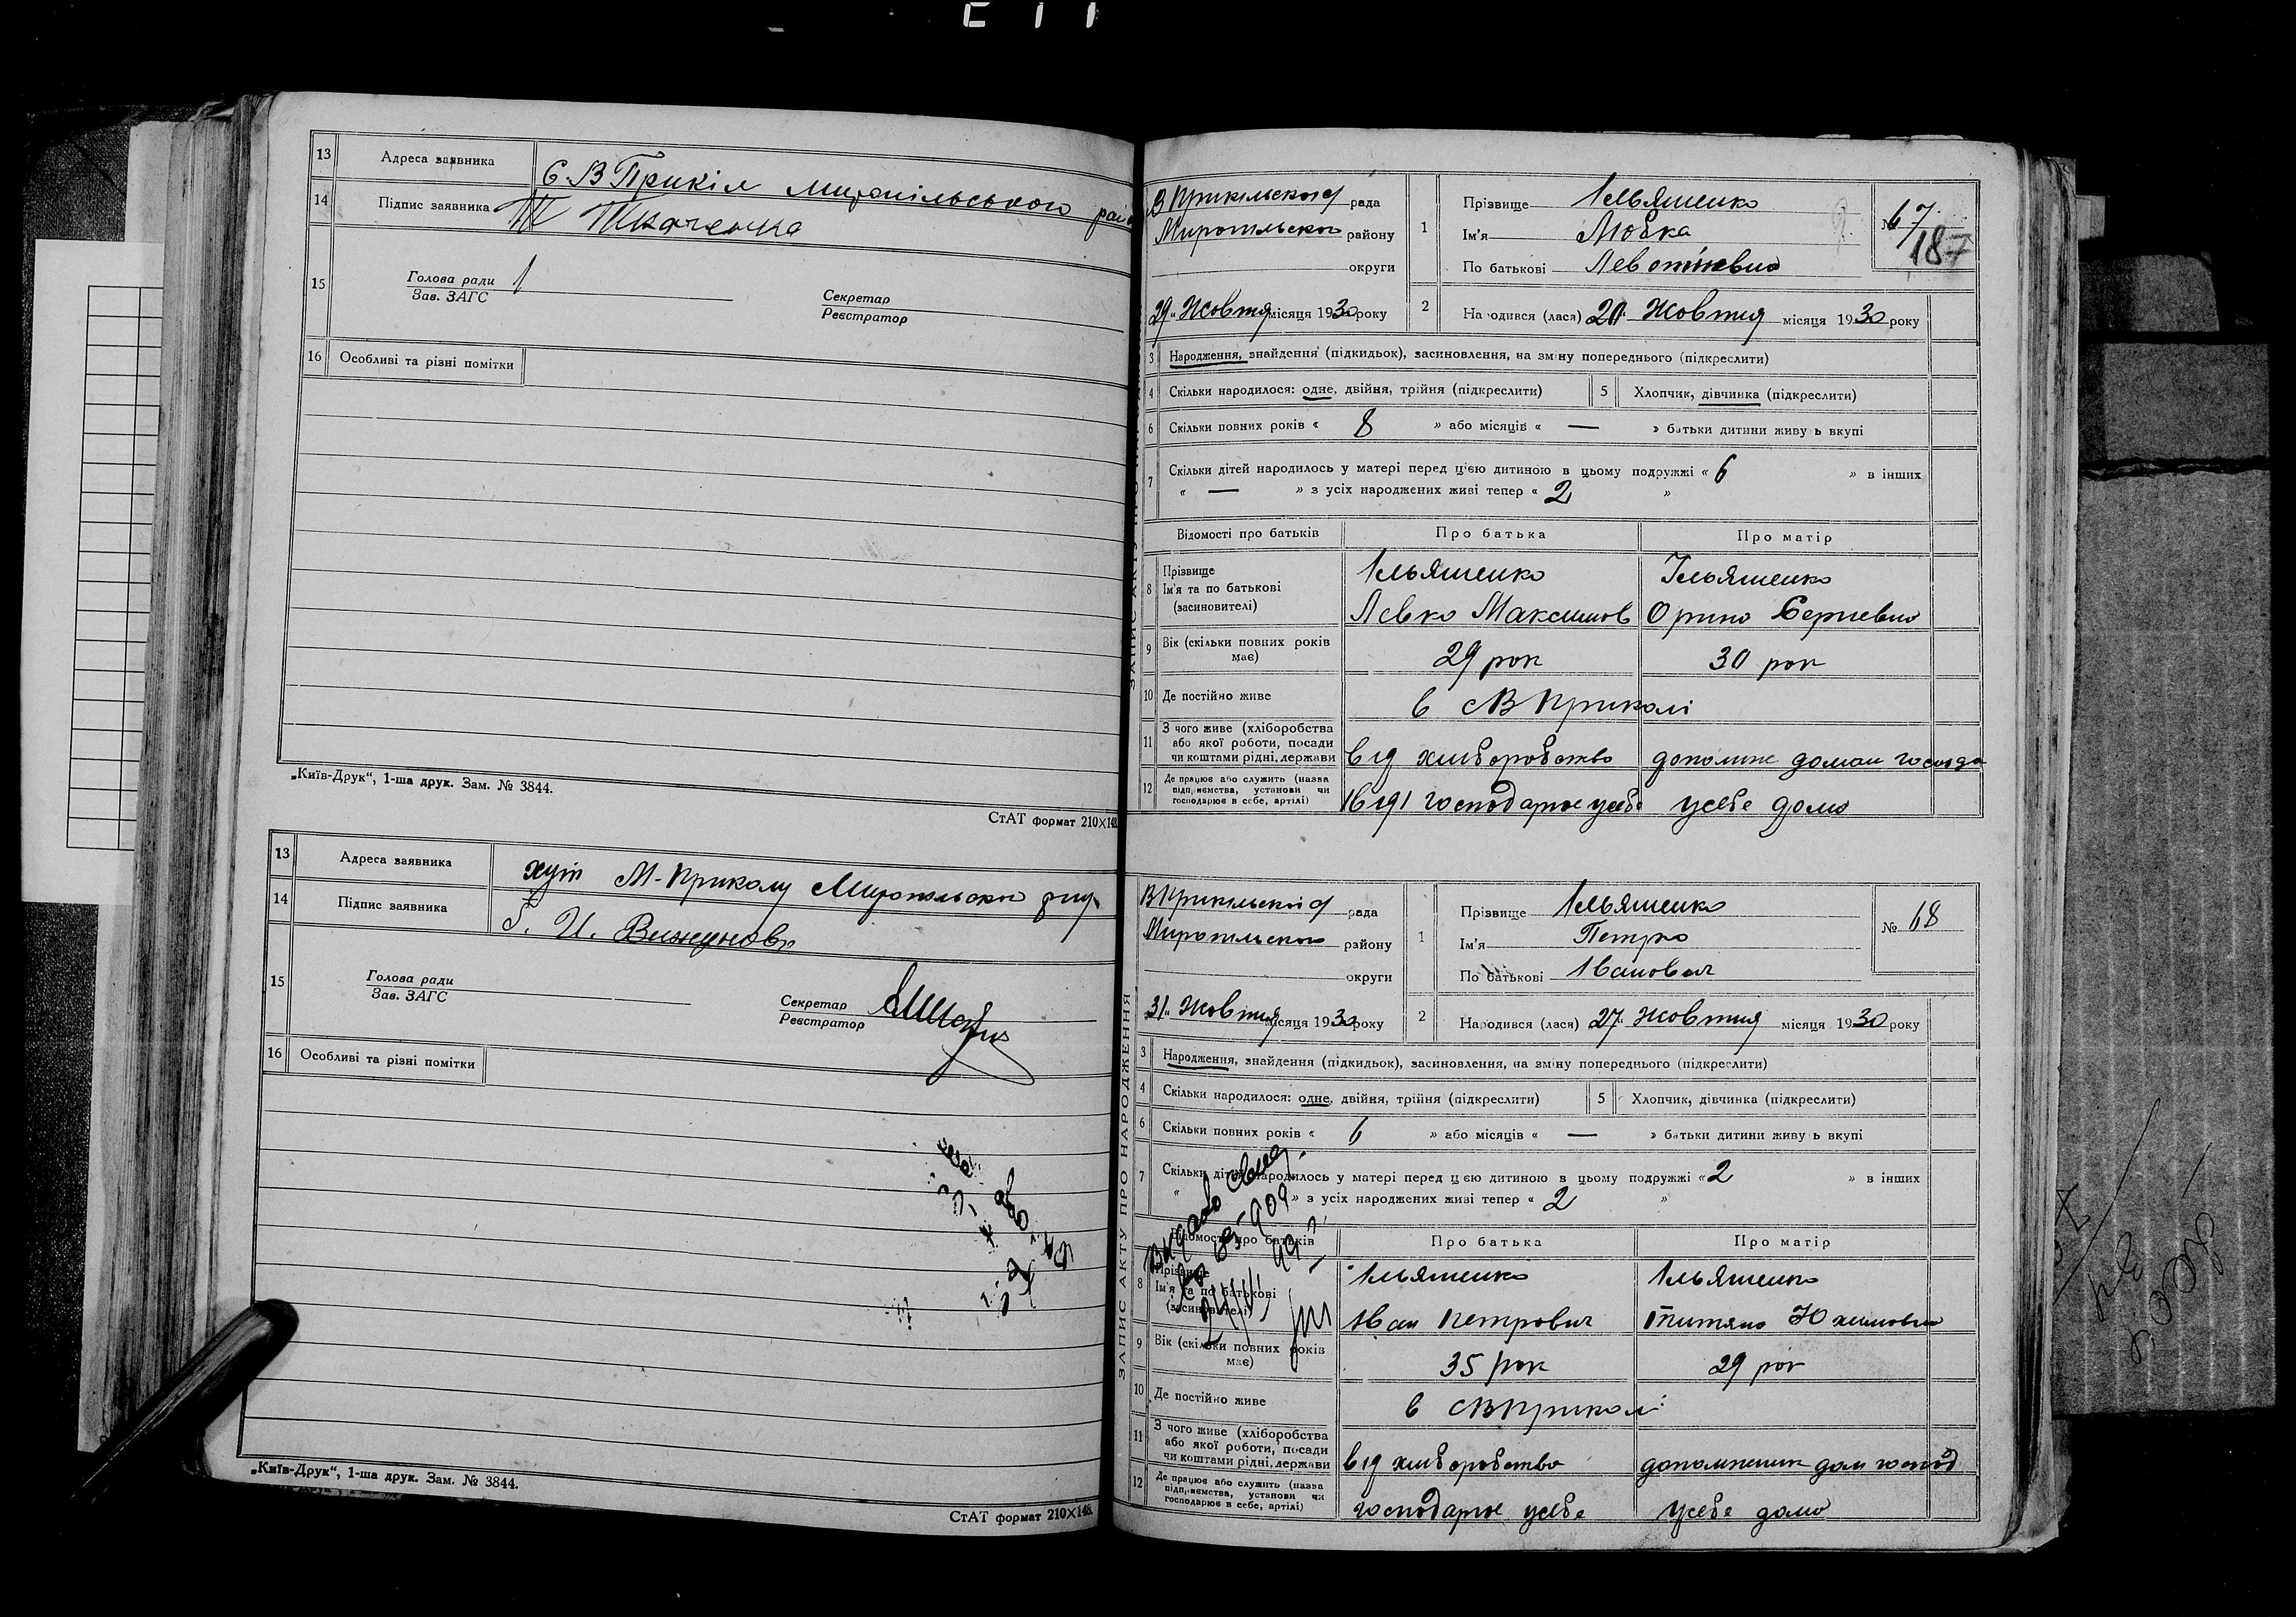 13 Адреса заявника с. В Прикіл Миропільського рай
14 Підпис заявника Ткаченка
15 Голова ради
Зав. ЗАГС
Секретар
Реєстратор
16 Особливі та різні помітки
„Київ-Друк“, 1-ша друк. Зам. № 3844.
СтАТ формат 210×148.
13 Адреса заявника хут М-Приколу Миропольского
14 Підпис заявника
15 Голова ради
Зав. ЗАГС
Секретар
Реєстратор
16 Особливі та різні помітки
„Київ-Друк“, 1-ша друк. Зам. № 3844.
СтАТ формат 210×148.
ЗАПИС АКТУ ПРО НАРОДЖЕННЯ
рада
району
округи
29 Жовтня місяця 1930 року
1 Прізвище Ільяшенко
Ім'я Любка
По батькові
№ 67
187
2 Народився (лася) 20 Жовтня місяця 1930 року
3 Народження, знайдення (підкидьок), засиновлення, на зміну попереднього (підкреслити)
4 Скільки народилося: одне, двійня, трійня (підкреслити)
5 Хлопчик, дівчинка (підкреслити)
6 Скільки повних років « 8 » або місяців « — » батьки дитини живуть вкупі
7 Скільки дітей народилось у матері перед цією дитиною в цьому подружжі « 6 » в інших
« — » з усіх народжених живі тепер « 2 »
Відомості про батьків Про батька Про матір
8 Прізвище Ільяшенко Ільяшенко
Ім'я та по батькові
(засиновителі) Левко Максимов Орина Сергиевна
9 Вік (скільки повних років має) 29 рок 30 рок
10 Де постійно живе в с В Приколі
11 З чого живе (хліборобства
або якої роботи, посади
чи коштами рідні, держави від хліборобство
12 Де працює або служить (назва
підприємства, установи чи
господарює в себе, артілі) господарює усебе усебе дома
рада
району
округи
31 Жовтня місяця 1930 року
1 Прізвище Ільяшенко
Ім'я Петро
По батькові Іванович
№ 68
2 Народився (лася) 27 Жовтня місяця 1930 року
3 Народження, знайдення (підкидьок), засиновлення, на зміну попереднього (підкреслити)
4 Скільки народилося: одне, двійня, трійня (підкреслити)
5 Хлопчик, дівчинка (підкреслити)
6 Скільки повних років « 6 » або місяців « — » батьки дитини живуть вкупі
7 Скільки дітей народилось у матері перед цією дитиною в цьому подружжі « 2 » в інших
« » з усіх народжених живі тепер « 2 »
Відомості про батьків Про батька Про матір
8 Прізвище Ільяшенко Ільяшенко
Ім'я та по батькові
(засиновителі) Іван Петрович
9 Вік (скільки повних років має) 35 рок 29 рок
10 Де постійно живе в с В Приколі
11 З чого живе (хліборобства
або якої роботи, посади
чи коштами рідні, держави від хліборобства
12 Де працює або служить (назва
підприємства, установи чи
господарює в себе, артілі) господарює усебе усебе дома